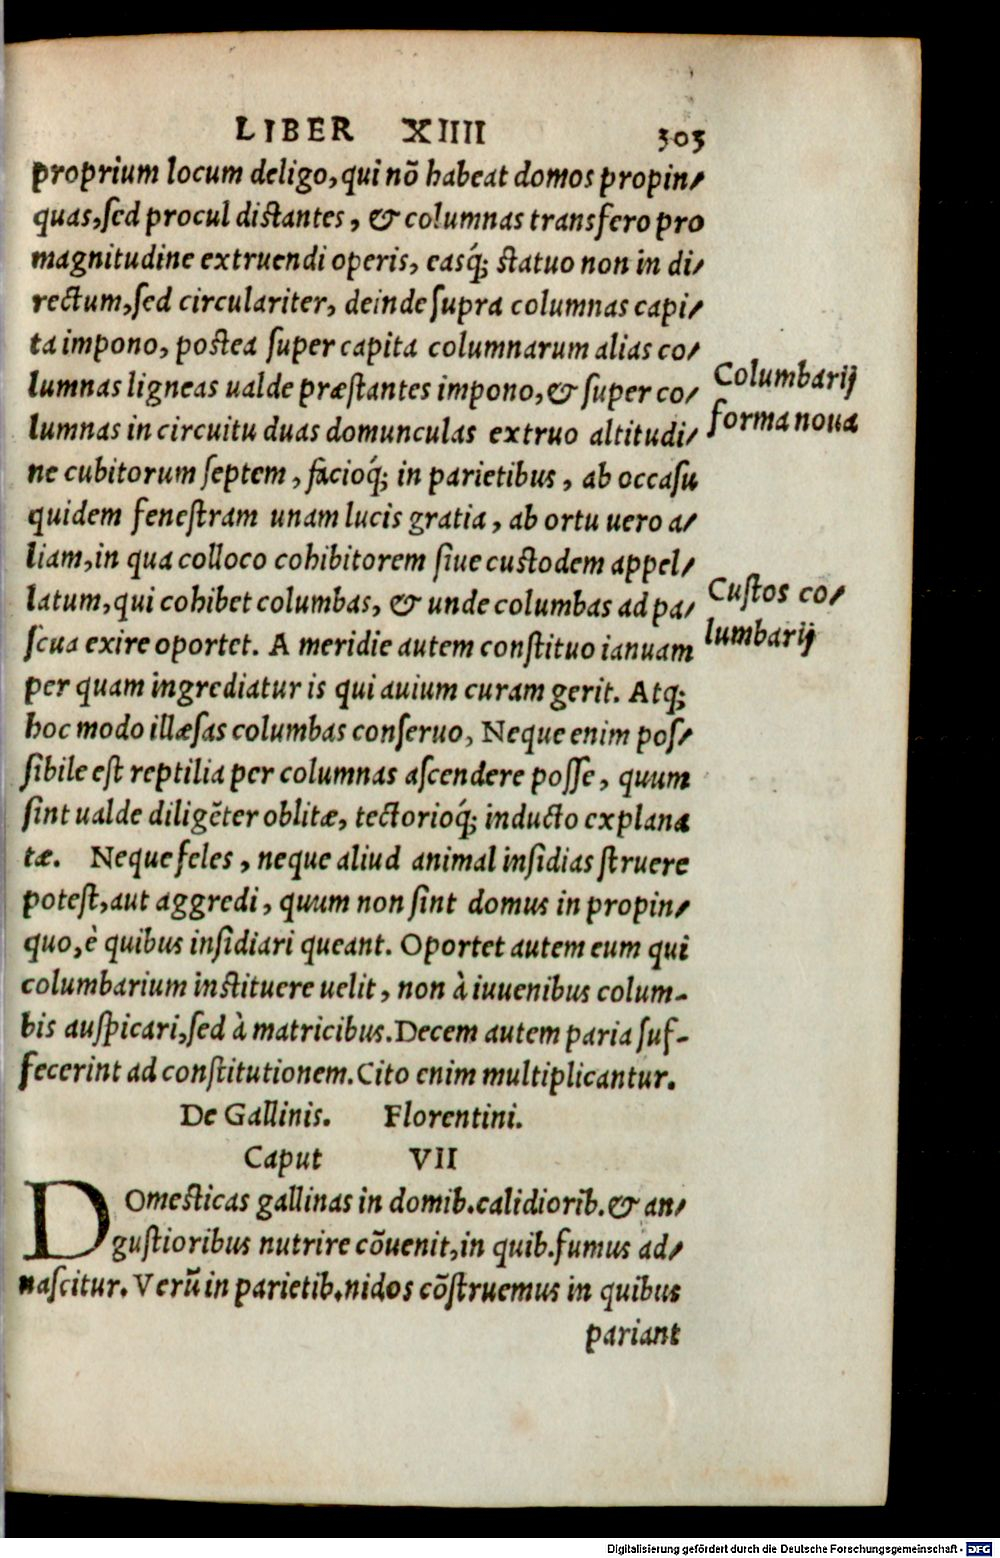 LIBER XIIII 303
proprium locum deligo, qui nõ habeat domos propin⸗
quas, sed procul distantes, & columnas transfero pro
magnitudine extruendi operis, easq́; statuo non in di⸗
rectum, sed circulariter, deinde supra columnas capi⸗
ta impono, postea super capita columnarum alias co⸗
lumnas ligneas ualde præstantes impono, & super co⸗
Columbarij
lumnas in circuitu duas domunculas extruo altitudi⸗
forma noua
ne cubitorum septem, facioq́; in parietibus, ab occasu
quidem fenestram unam lucis gratia, ab ortu uero a⸗
liam, in qua colloco cohibitorem siue custodem appel⸗
latum, qui cohibet columbas, & unde columbas ad pa⸗
Custos co⸗
scua exire oportet. A meridie autem constituo ianuam
lumbarij
per quam ingrediatur is qui auium curam gerit. Atq;
hoc modo illæsas columbas conseruo, Neque enim pos⸗
sibile est reptilia per columnas ascendere posse, quum
sint ualde diligẽter oblitæ, tectorioq́; inducto explana
tæ. Neque feles, neque aliud animal insidias struere
potest, aut aggredi, quum non sint domus in propin⸗
quo, è quibus insidiari queant. Oportet autem eum qui
columbarium instituere uelit, non à iuuenibus colum-
bis auspicari, sed à matricibus. Decem autem paria suf-
fecerint ad constitutionem. Cito enim multiplicantur.
De Gallinis. Florentini.
Caput VII
DOmesticas gallinas in domib. calidiorib. & an⸗
gustioribus nutrire cõuenit, in quib. fumus ad⸗
nascitur. Verũ in parietib. nidos cõstruemus in quibus
pariant
Digitalisierung gefördert durch die Deutsche Forschungsgemeinschaft - DFG